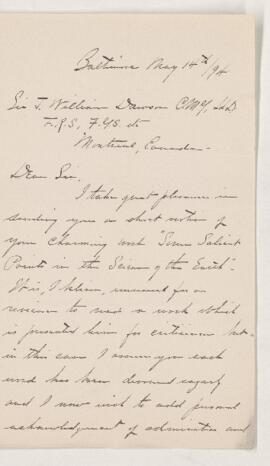 Baltimore May 14th/94
Sir J. William Dawson C.M.G., LL.D
F.R.S., F.G.S. etc
Montreal, Canada -
Dear Sir.
I take great pleasure in
sending you a short notice of
your charming work "Some Salient
Points in the Science of the Earth".
It is, I believe, unusual for a
reviewer to read a work which
is presented him for criticism but
in this case I assure you each
word has been devoured eagerly
and I now wish to add personal
acknowledgment of admiration and